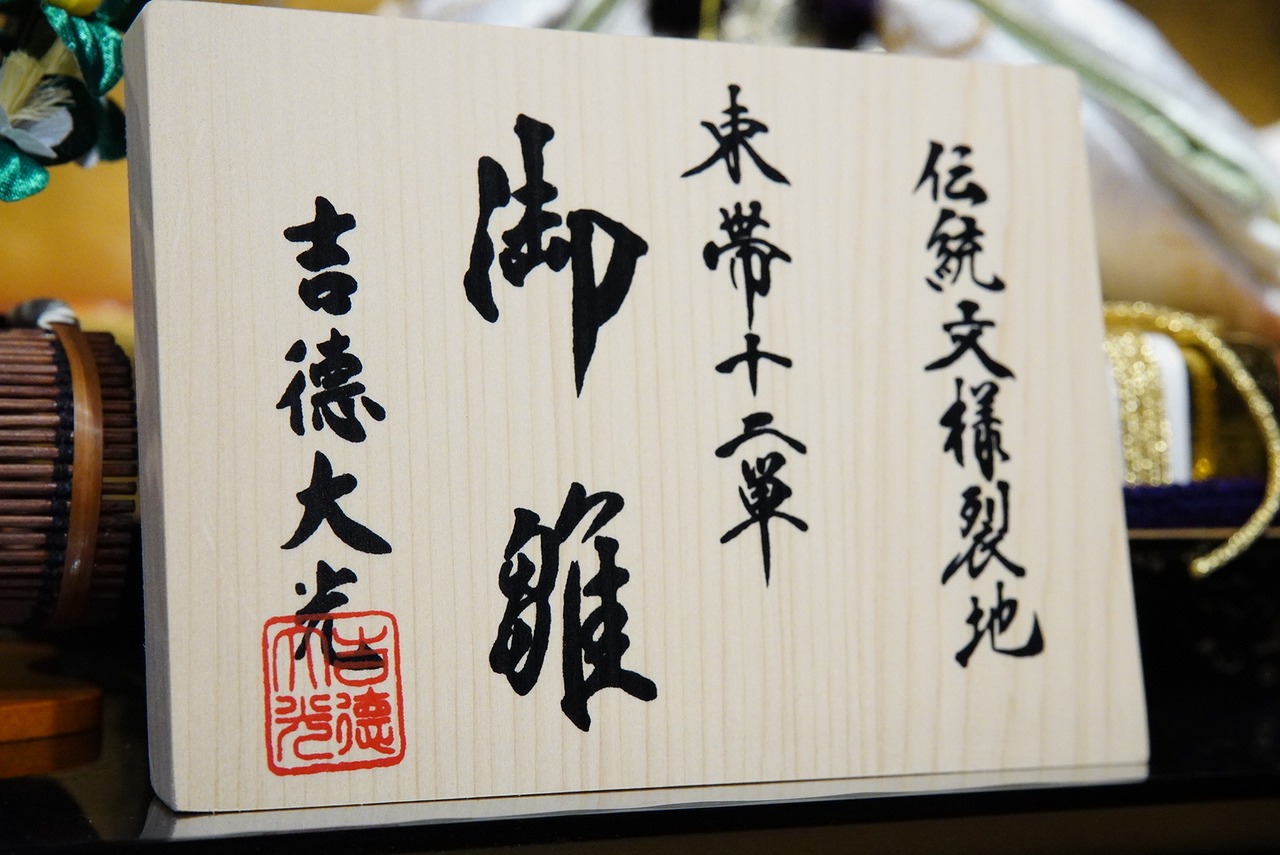 伝統文様裂地
東帯十二單
御雛
吉德大光
吉德大光